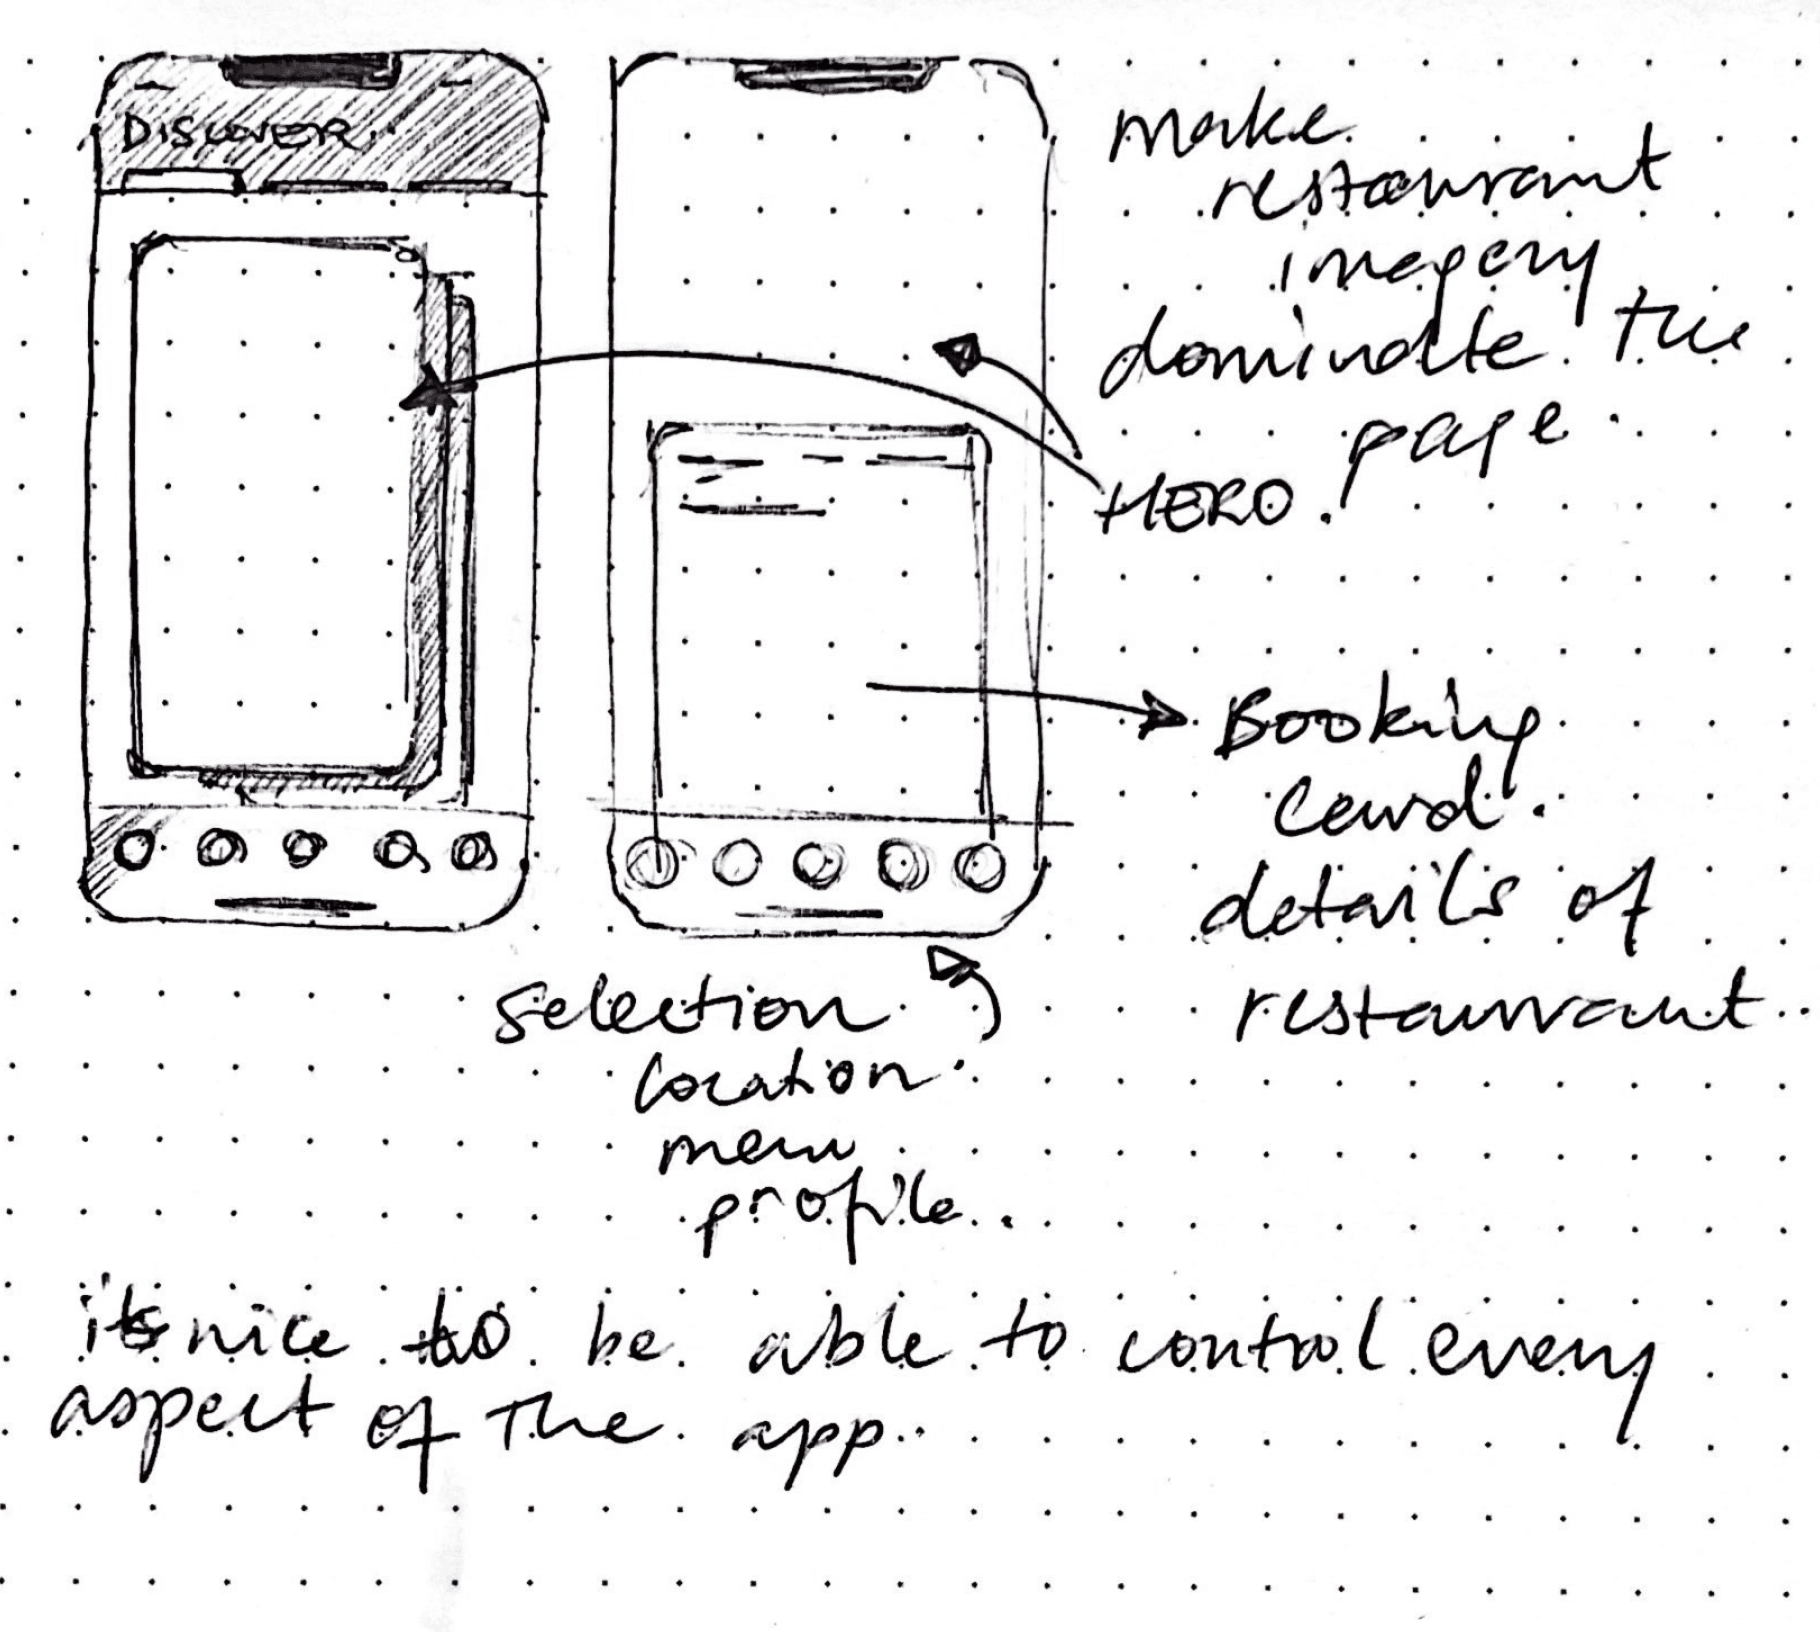 DISCOVER.
make
restaurant
imagery
dominate the
page.
HERO.
Booking
card.
details of
restaurant.
selection
location
menu
profile.
its nice to be able to control every
aspect of the app.